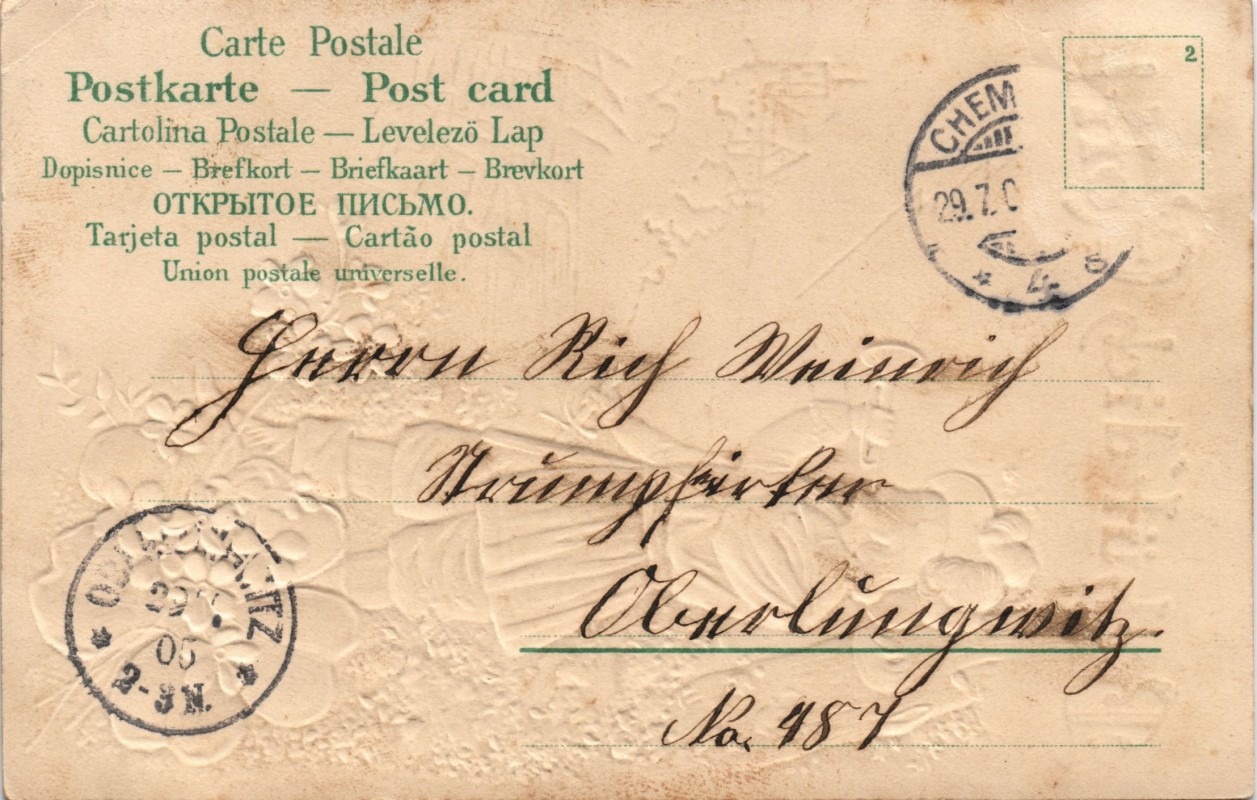 Carte Postale
Postkarte — Post card
Cartolina Postale — Levelezö Lap
Dopisnice — Brefkort — Briefkaart — Brevkort
ОТКРЫТОЕ ПИСЬМО.
Tarjeta postal — Cartão postal
Union postale universelle.
2
CHEM
29.7.0
* 4. S
Herrn Rich Weinrich
Strumpfwirker
Oberlungwitz.
No. 487
29
05
2-3 N.